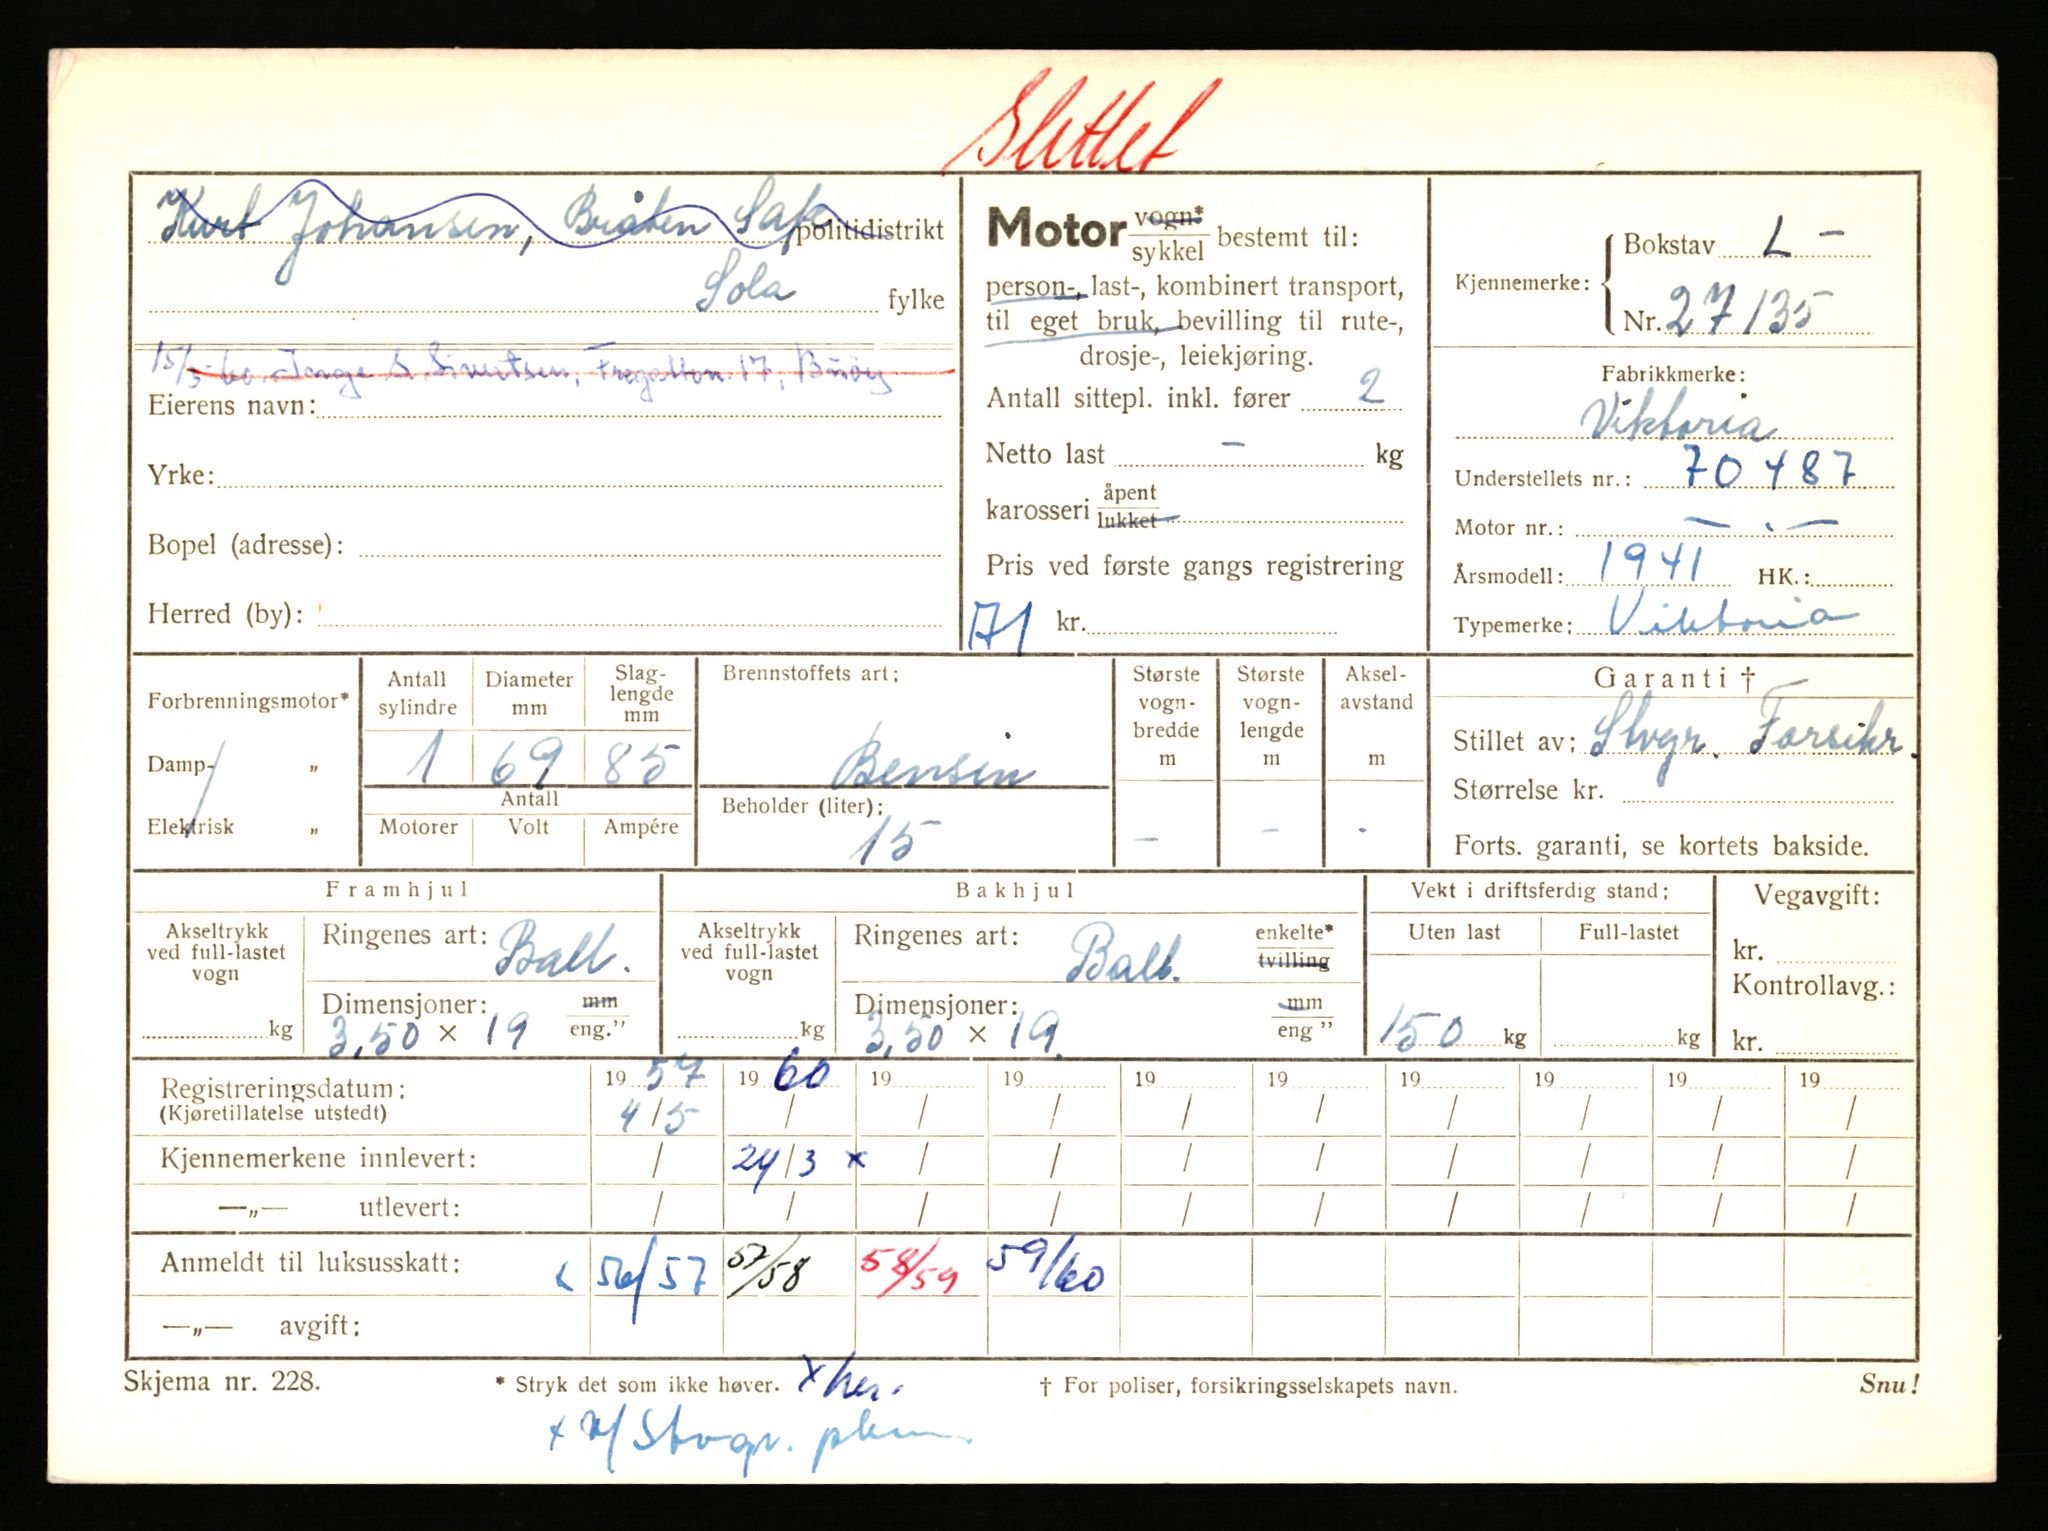 Slettet
Kurt Johansen, Bråten politidistrikt
Sola fylke
15/5-60. Inge S. Sivertsen, Fregattvn. 17, Buøy
Eierens navn:
Yrke:
Bopel (adresse):
Herred (by):
Motor vogn*
sykkel bestemt til:
person-, last-, kombinert transport,
til eget bruk, bevilling til rute-,
drosje-, leiekjøring.
Antall sittepl. inkl. fører 2
Netto last – kg
karosseri åpent
lukket
Pris ved første gangs registrering
kr.
Kjennemerke: Bokstav L –
Nr. 27135
Fabrikkmerke:
Viktoria
Understellets nr.: 70487
Motor nr.: — . —
Årsmodell: 1941 HK.:
Typemerke: Viktoria
Forbrenningsmotor*
Damp- „
Elektrisk „
Antall sylindre 1
Diameter mm 69
Slag-
lengde
mm 85
Antall
Motorer Volt Ampére
Brennstoffets art:
Bensin
Beholder (liter):
15
Største
vogn-
bredde
m
–
Største
vogn-
lengde
m
–
Aksel-
avstand
m
-
Garanti †
Stillet av: Stvgr. Forsikr.
Størrelse kr.
Forts. garanti, se kortets bakside.
Framhjul
Akseltrykk
ved full-lastet
vogn
kg
Ringenes art: Ball.
Dimensjoner: mm
3,50 × 19 eng.”
Bakhjul
Akseltrykk
ved full-lastet
vogn
kg
Ringenes art: Ball. enkelte*
tvilling
Dimensjoner: mm
3,50 × 19. eng ”
Vekt i driftsferdig stand:
Uten last Full-lastet
150 kg kg
Vegavgift:
kr.
Kontrollavg.:
kr.
Registreringsdatum: 19 57 19 60 19 19 19 19 19 19 19 19
(Kjøretillatelse utstedt) 4/5 / / / / / / / / /
Kjennemerkene innlevert: / 24/3 × / / / / / / / /
—„— utlevert: / / / / / / / / / /
Anmeldt til luksusskatt: 56/57 57/58 58/59 59/60
—„— avgift:
Skjema nr. 228. * Stryk det som ikke høver. × her. † For poliser, forsikringsselskapets navn. Snu!
Stvgr.